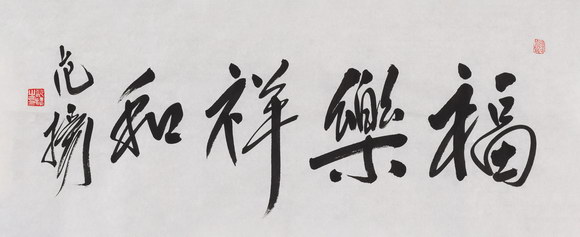 福樂祥和
范扬